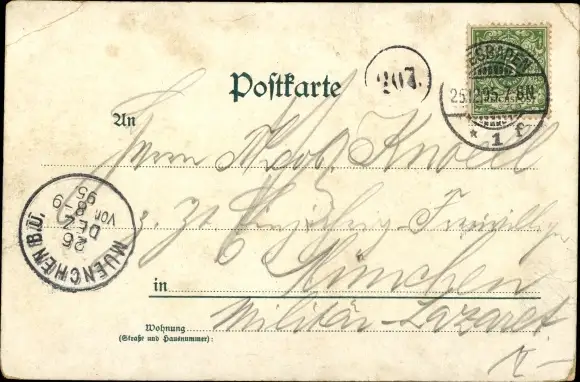 Postkarte
207.
WIESBADEN
25.12.95.7-8N
* 1 c
REICHSPOST
An
Herrn Knoell
z. Zt. Einjährig-Freiwillig
in München
Militär-Lazaret
MUENCHEN B.Ü.
26
DEZ
VOR 8 9
95
Wohnung
(Straße und Hausnummer):